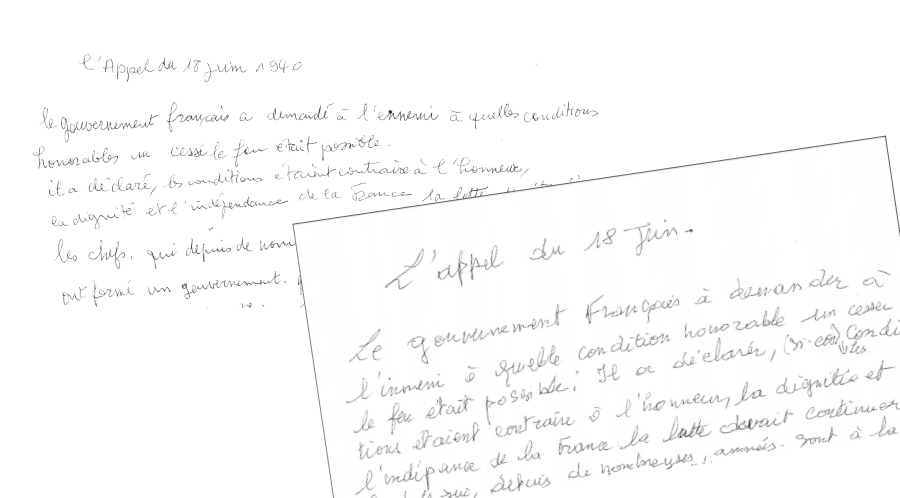 l'Appel du 18 juin 1940
le gouvernement français a demandé à l'ennemi à quelles conditions
honorables un cessé le feu était possible.
il a déclaré, les conditions étaient contraire à l'honneur,
la dignité et l'indépendance de la France la lutte
les chefs, qui depuis de nom
ont formé un gouvernement.
L'appel du 18 Juin.
Le gouvernement Français à demander à
l'inmemi à quelle condition honorable un cesser
le feu était possible; Il a déclarér, (si ces) Condi
les
tions étaient contraire à l'honneur, la dignitée et
l'indipance de la France la lutte devait continuer
qui, depuis de nombreuses, années. sont à la